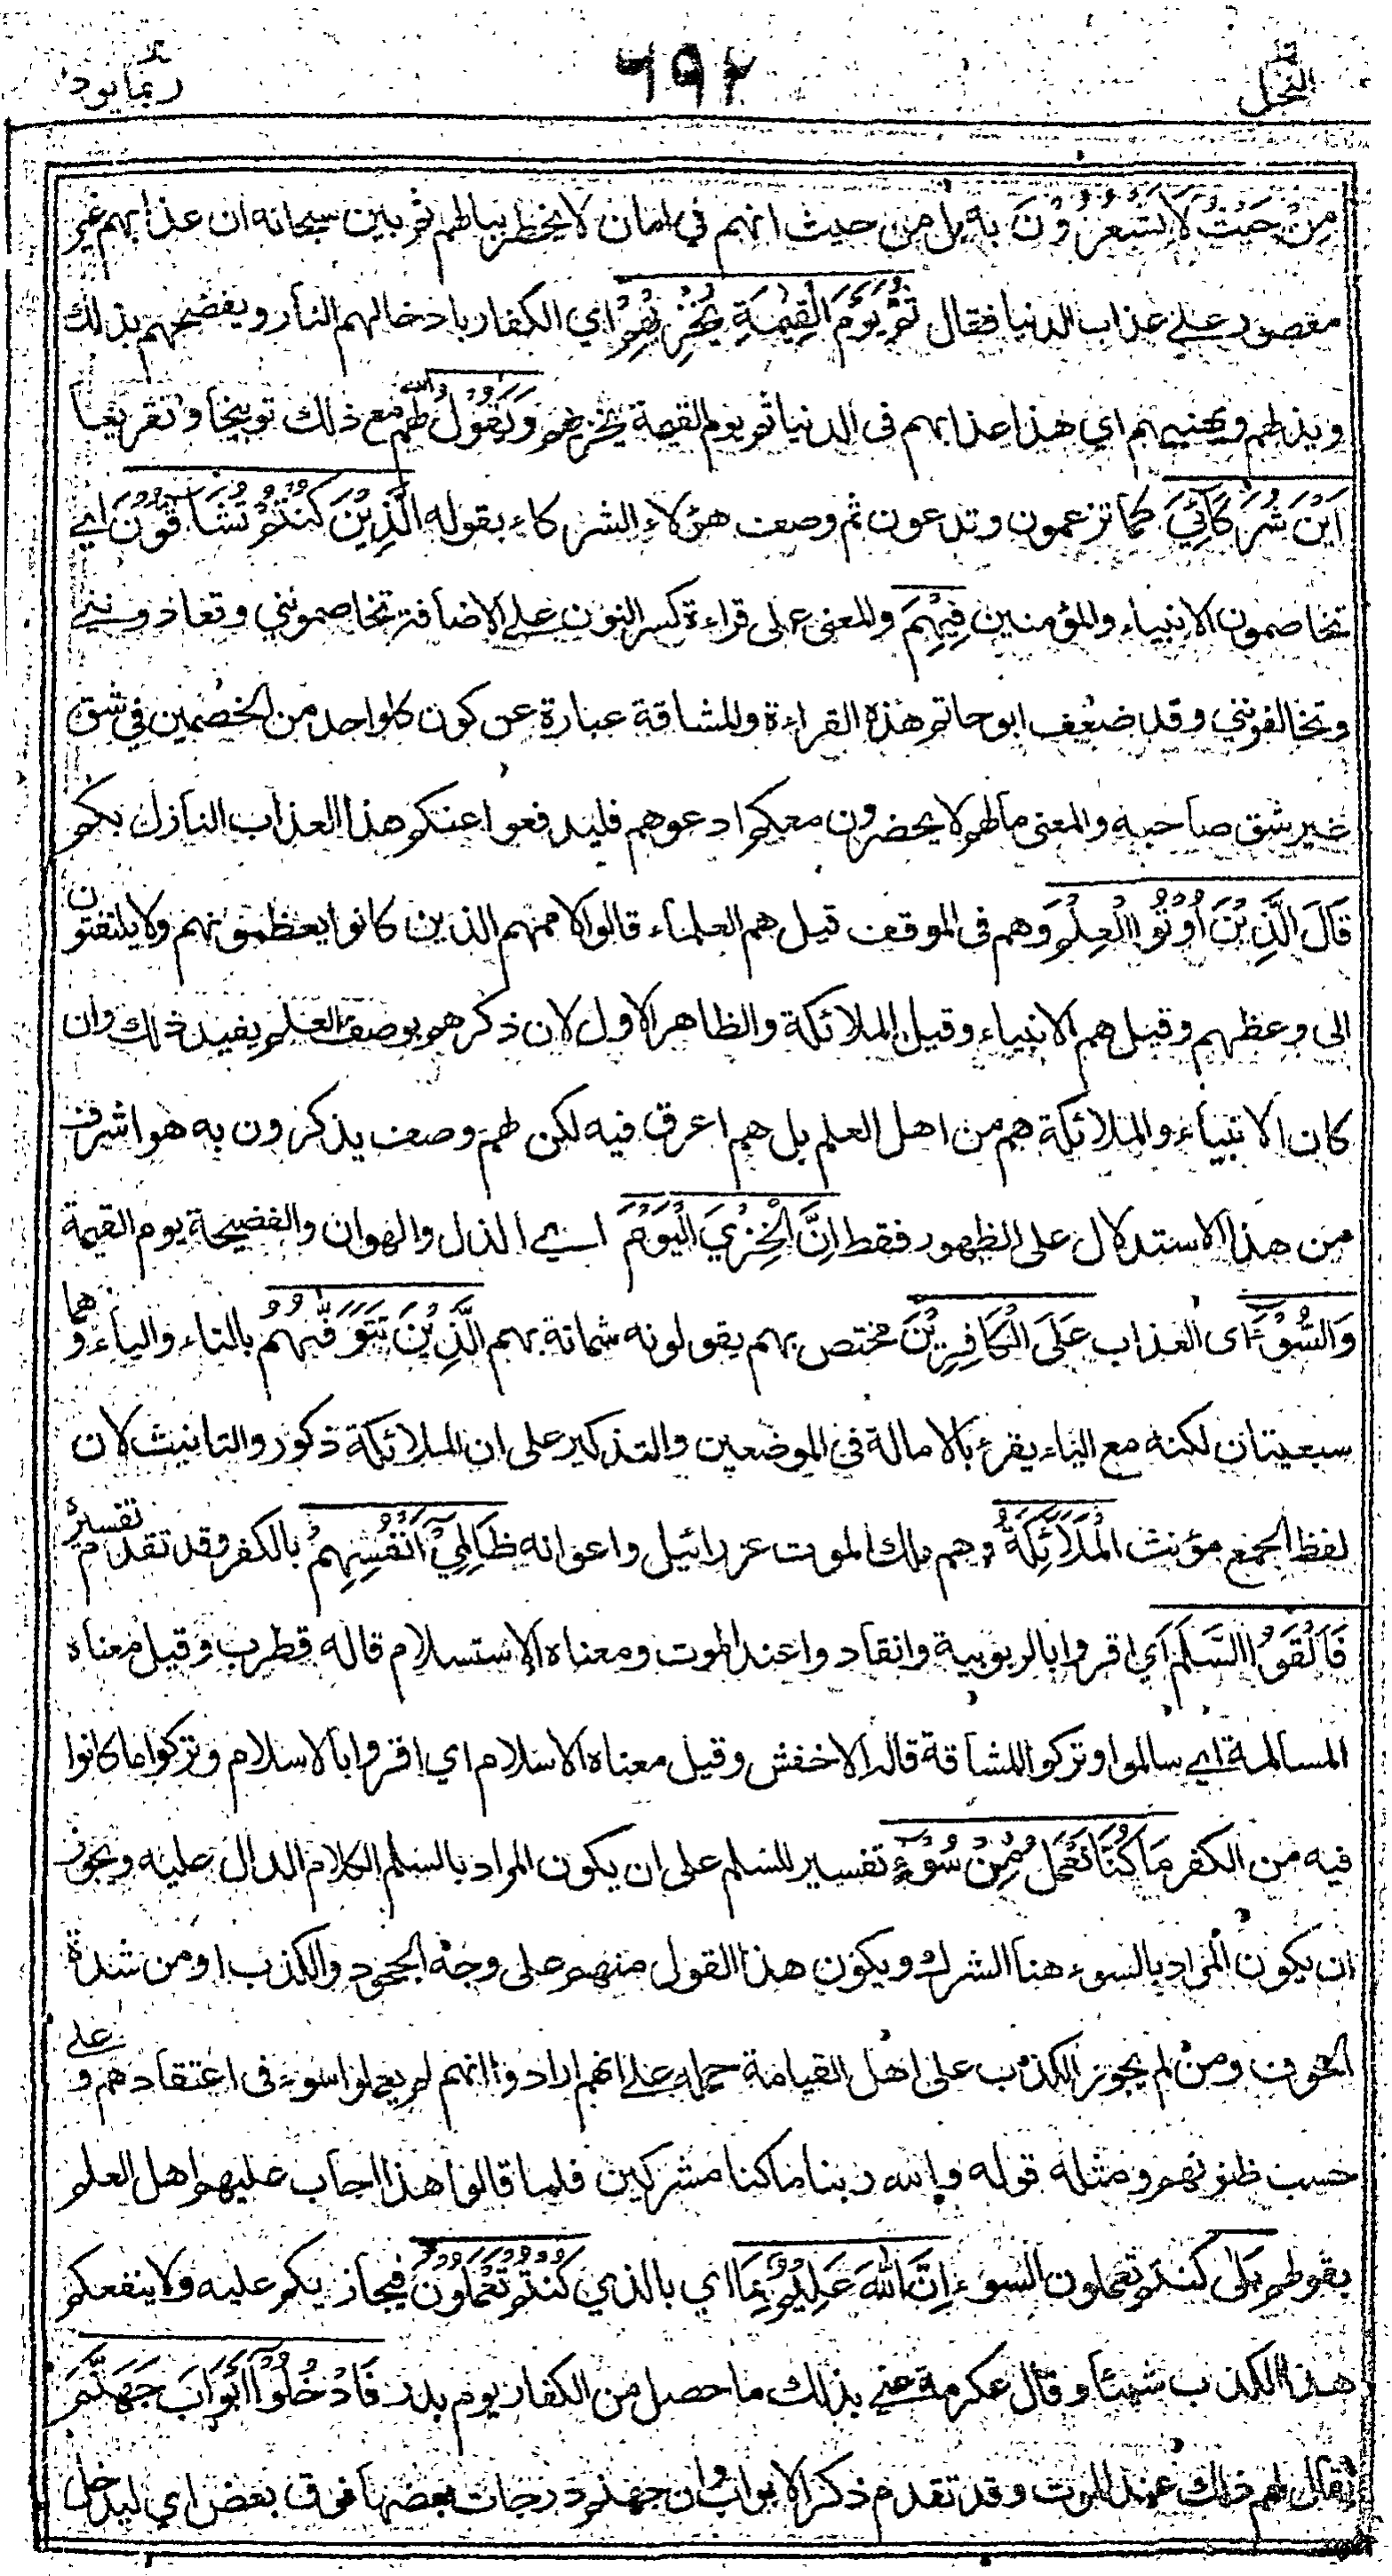 النحل ٦٩٢ ربما يود
مِنْ حَيْثُ لَا يَشْعُرُوْنَ به بل من حيث انهم في امان لا يخطر ببالهم ثم بين سبحانه ان عذابهم غير
مقصور علے عذاب الدنيا فقال ثُمَّ يَوْمَ الْقِيٰمَةِ يُخْزِيْهِمْ اي الكفار بادخالهم النار و يفضحهم بذلك
ويذلهم ويهينهم اي هذا عذابهم فى الدنيا ثم يوم القيمة يخزيهم وَيَقُوْلُ الله لهم مع ذلك توبيخا وتقريعا
اَيْنَ شُرَكَآئِيَ كما تزعمون وتدعون ثم وصف هؤلاء الشركاء بقوله الَّذِيْنَ كُنْتُمْ تُشَآقُّوْنَ اي
تخاصمون الانبياء والمؤمنين فِيْهِمْ والمعنى على قراءة كسر النون علے الاضافة تخاصمونني وتعادونني
وتخالفونني وقد ضعف ابو حاتم هذه القراءة وللمشاقة عبارة عن كون كل واحد من الخصمين في شق
غير شق صاحبه والمعنى مالهم لا يحضرون معكم ادعوهم فليدفعوا عنكم هذا العذاب النازل بكم
قَالَ الَّذِيْنَ اُوْتُوا الْعِلْمَ وهم فى الموقف قيل هم العلماء قالوا لاممهم الذين كانوا يعظمونهم ولا يلتفتون
الى وعظهم وقيل هم الانبياء وقيل الملائكة والظاهر الاول لان ذكرهم بوصف العلم يفيد ذلك وان
كان الانبياء والملائكة هم من اهل العلم بل هم اعرق فيه لكن لهم وصف يذكرون به هو اشرف
من هذا الاستدلال على الظهور فقط اِنَّ الْخِزْيَ الْيَوْمَ اے الذل والهوان والفضيحة يوم القيمة
وَالسُّوْٓءَ اى العذاب عَلَى الْكَافِرِيْنَ مختص بهم يقولونه شماتة بهم الَّذِيْنَ تَتَوَفّٰهُمُ بالتاء والياء وهما
سبعيتان لكنه مع الياء يقرء بالامالة في الموضعين والتذكير على ان الملائكة ذكور والتانيث لان
لفظ الجمع مؤنث الْمَلَآئِكَةُ وهم ملك الموت عزرائيل واعوانه ظَالِمِيْٓ اَنْفُسِهِمْ بالكفر وقد تقدم تفسيره
فَاَلْقَوُا السَّلَمَ اي اقروا بالربوبية وانقادوا عند الموت ومعناه الاستسلام قاله قطرب وقيل معناه
المسالمة اي سالموا وتركوا المشاقة قاله الاخفش وقيل معناه الاسلام اي اقروا بالاسلام وتركوا ما كانوا
فيه من الكفر مَا كُنَّا نَعْمَلُ مِنْ سُوْٓءٍ تفسير للسلم على ان يكون المراد بالسلم الكلام الدال عليه ويجوز
ان يكون المراد بالسوء هنا الشرك ويكون هذا القول منهم على وجه الجحود والكذب او من شدة
الخوف ومن لم يجوز الكذب على اهل القيامة حمله علے انهم ارادوا انهم لم يعملوا سوء فى اعتقادهم وعلے
حسب ظنونهم ومثله قوله والله ربنا ما كنا مشركين فلما قالوا هذا اجاب عليهم اهل العلم
بقولهم بَلٰى كنتم تعملون السوء اِنَّ اللّٰهَ عَلِيْمٌۢ بِمَا اي بالذي كُنْتُمْ تَعْمَلُوْنَ فيجازيكم عليه ولا ينفعكم
هذا الكذب شيئا وقال عكرمة عنى بذلك ما حصل من الكفار يوم بدر فَادْخُلُوْٓا اَبْوَابَ جَهَنَّمَ
يقال لهم ذلك عند الموت وقد تقدم ذكر الابواب وان جهنم درجات بعضها فوق بعض اي ليدخل